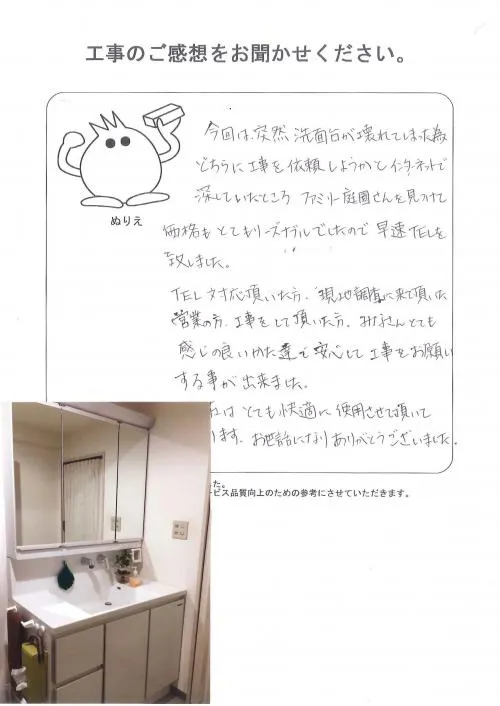 工事のご感想をお聞かせください。
ぬりえ
今回は、突然 洗面台が壊れてしまった為
どちらに工事を依頼しようかとインターネットで
探していたところ ファミリー庭園さんを見つけて
価格もとてもリーズナブルでしたので早速TELを
致しました。
TEL対応頂いた方、現地調査に来て頂いた
営業の方、工事をして頂いた方、みなさんとても
感じの良いかた達で安心して工事をお願い
する事が出来ました。
はとても快適に使用させて頂いて
ります。お世話になりありがとうございました。
た。
ービス品質向上のための参考にさせていただきます。